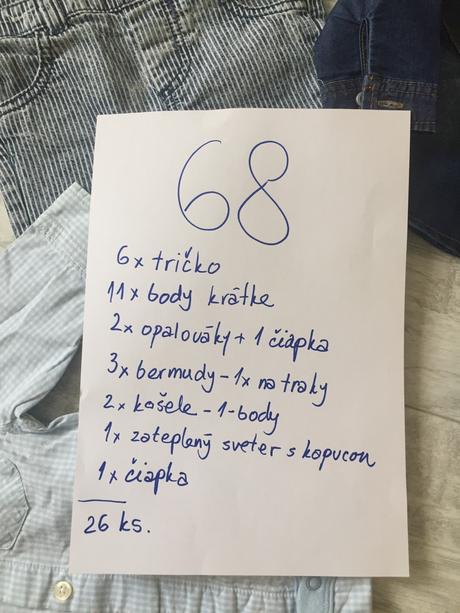 68
6x tričko
11x body krátke
2x opalováky + 1 čiapka
3x bermudy - 1x na traky
2x košele - 1-body
1x zateplený sveter s kapucon
1x čiapka
26 ks.